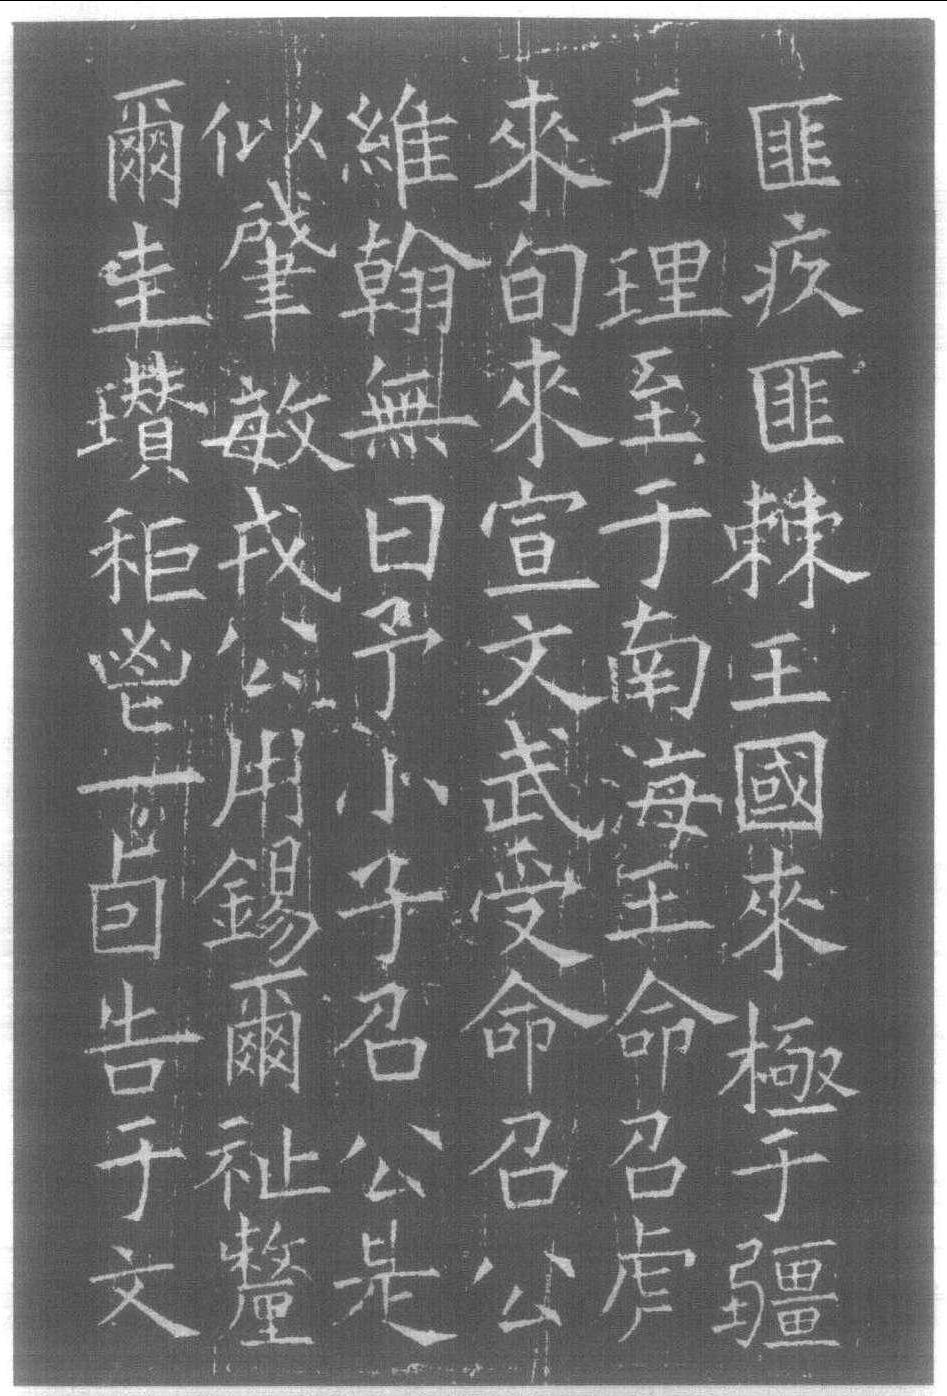 匪疚匪棘王國來極于疆
于理至于南海王命召虎
來旬來宣文武受命召公
維翰無曰予小子召公是
似肇敏戎公用錫爾祉釐
爾圭瓚秬鬯一卣告于文